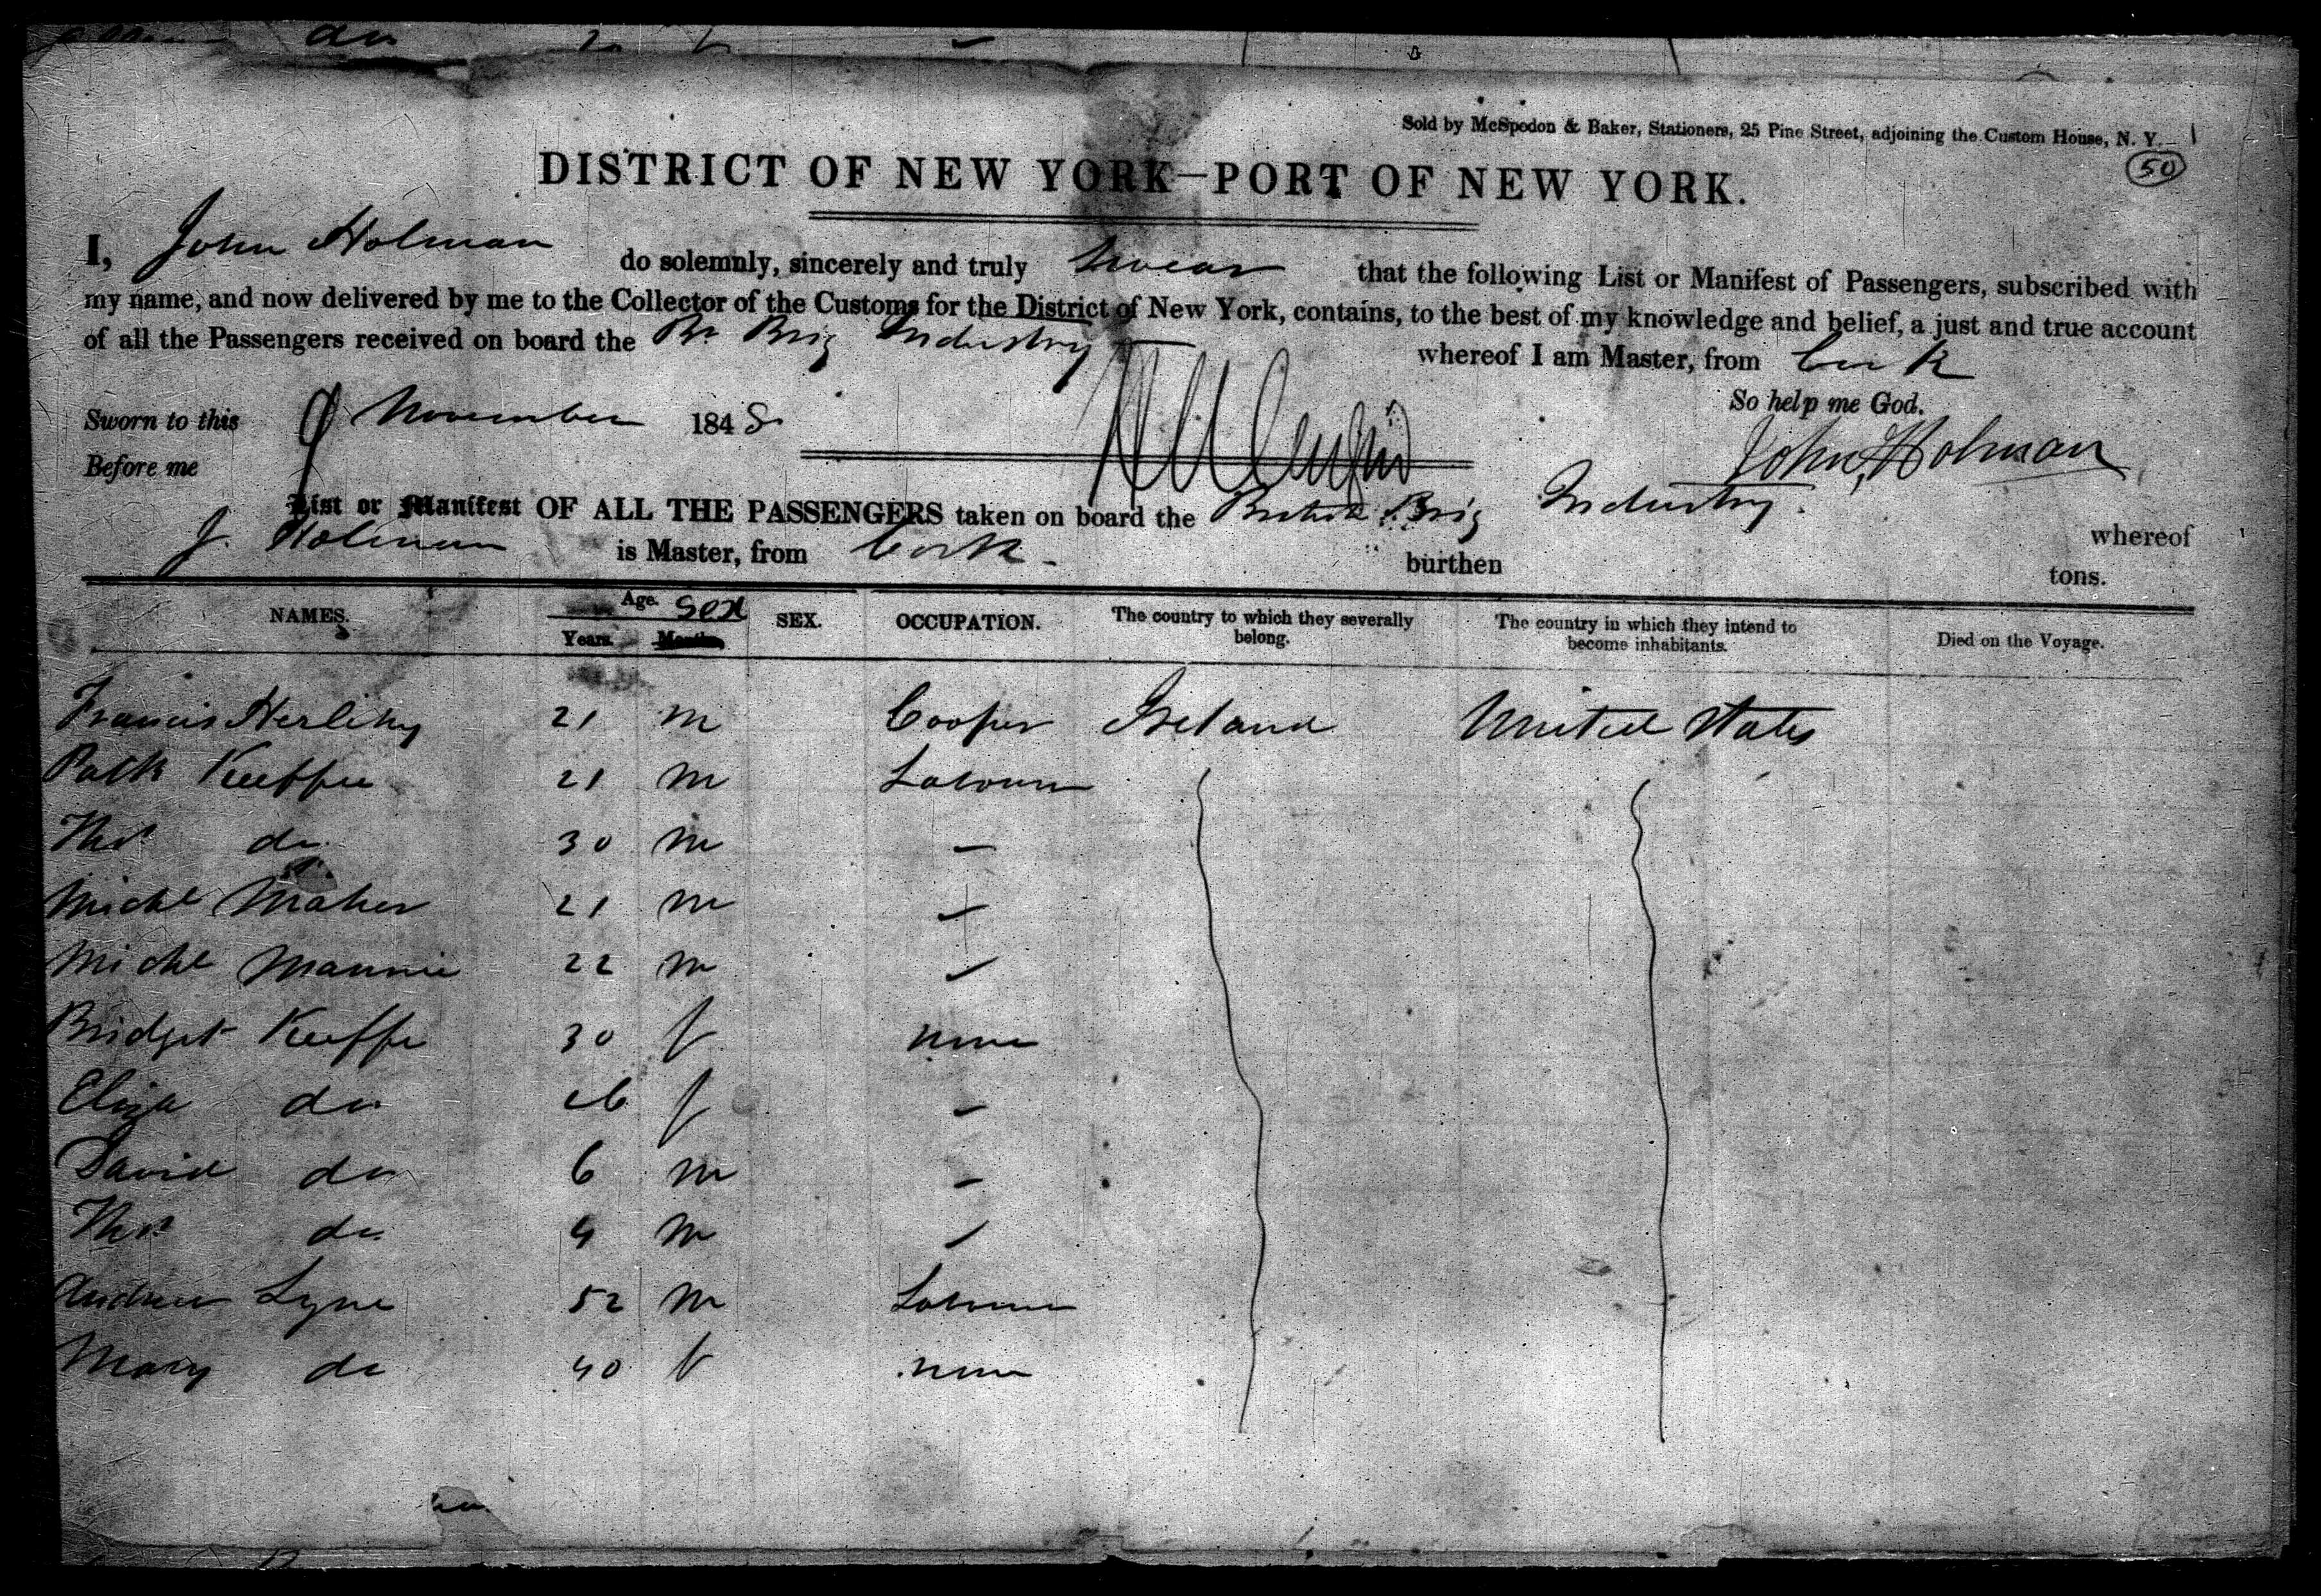 do 20 f
Sold by McSpedon & Baker, Stationers, 25 Pine Street, adjoining the Custom House, N. Y.
50
DISTRICT OF NEW YORK—PORT OF NEW YORK.
I, John Holman do solemnly, sincerely and truly swear that the following List or Manifest of Passengers, subscribed with
my name, and now delivered by me to the Collector of the Customs for the District of New York, contains, to the best of my knowledge and belief, a just and true account
of all the Passengers received on board the Br Brig Industry whereof I am Master, from Cork
So help me God.
Sworn to this 9 November 1848
John Holman
Before me
List or Manifest OF ALL THE PASSENGERS taken on board the British Brig Industry. whereof
J. Holman is Master, from Cork burthen tons.
NAMES. Age. Sex SEX. OCCUPATION. The country to which they severally belong. The country in which they intend to become inhabitants. Died on the Voyage.
Years. Months
Francis Herlihy 21 m Cooper Ireland United States
Patk Keeffee 21 m Labourer
Thos do 30 m –
Michl Maher 21 m –
Michl 22 m –
Bridget Keeffe 30 f none
Eliza do 26 f –
David do 6 m –
Thos do 4 m –
Andrew Lyne 52 m Labourer
Mary do 40 f none